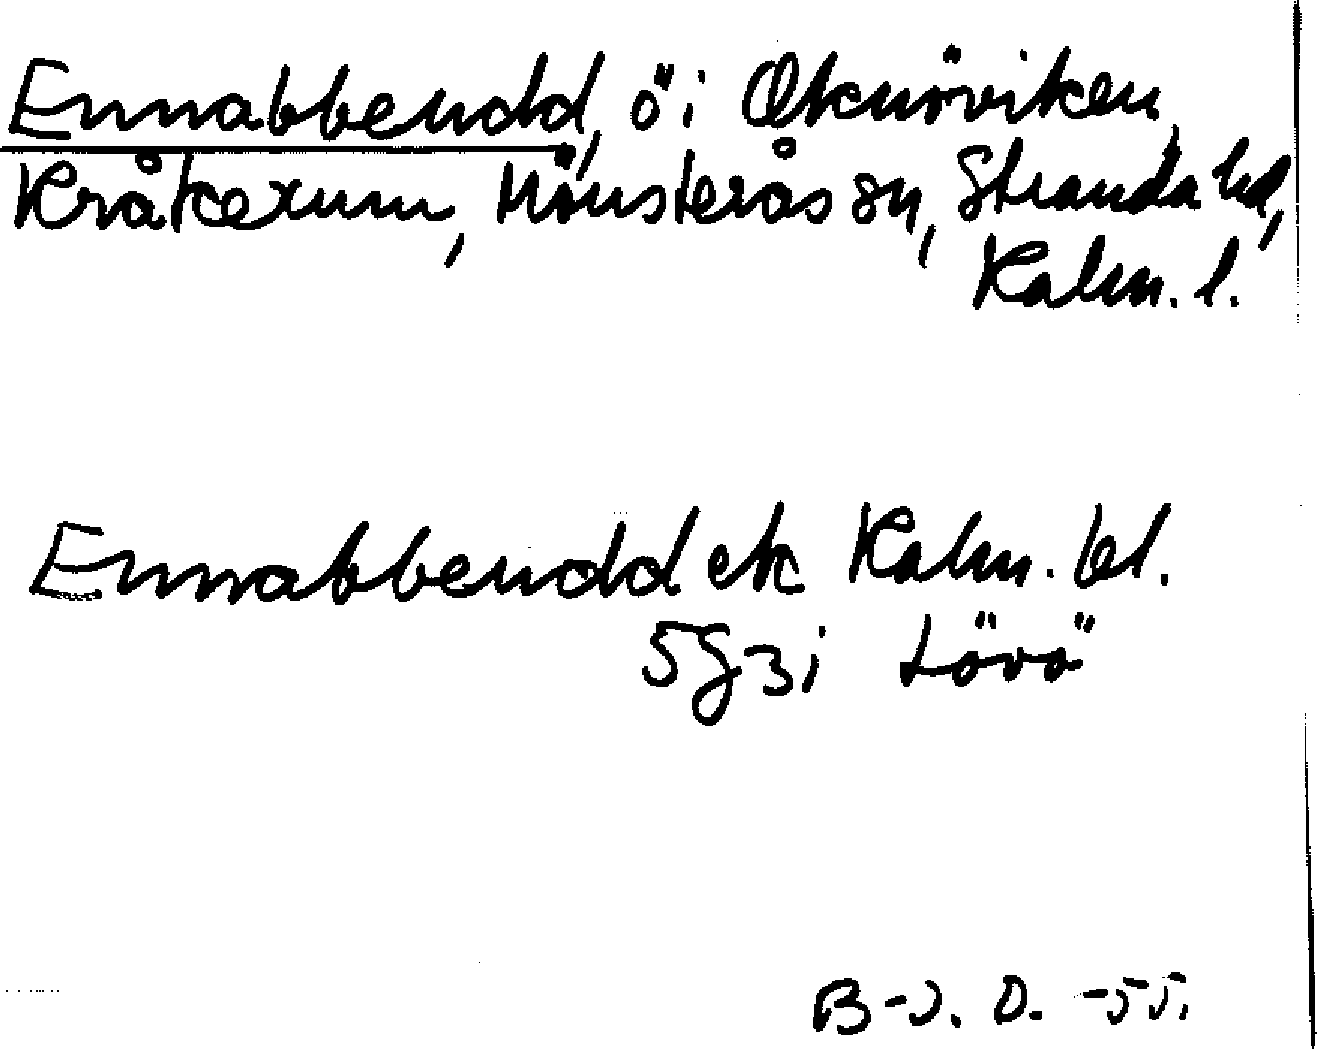 Ennabbeudd, ö i Oknöviken,
Kråkerum, Mönsterås sn, Stranda hd,
Kalm. l.
Ennabbeudd ek Kalm. bl.
5g3i Lövö
B-J. D. -55.